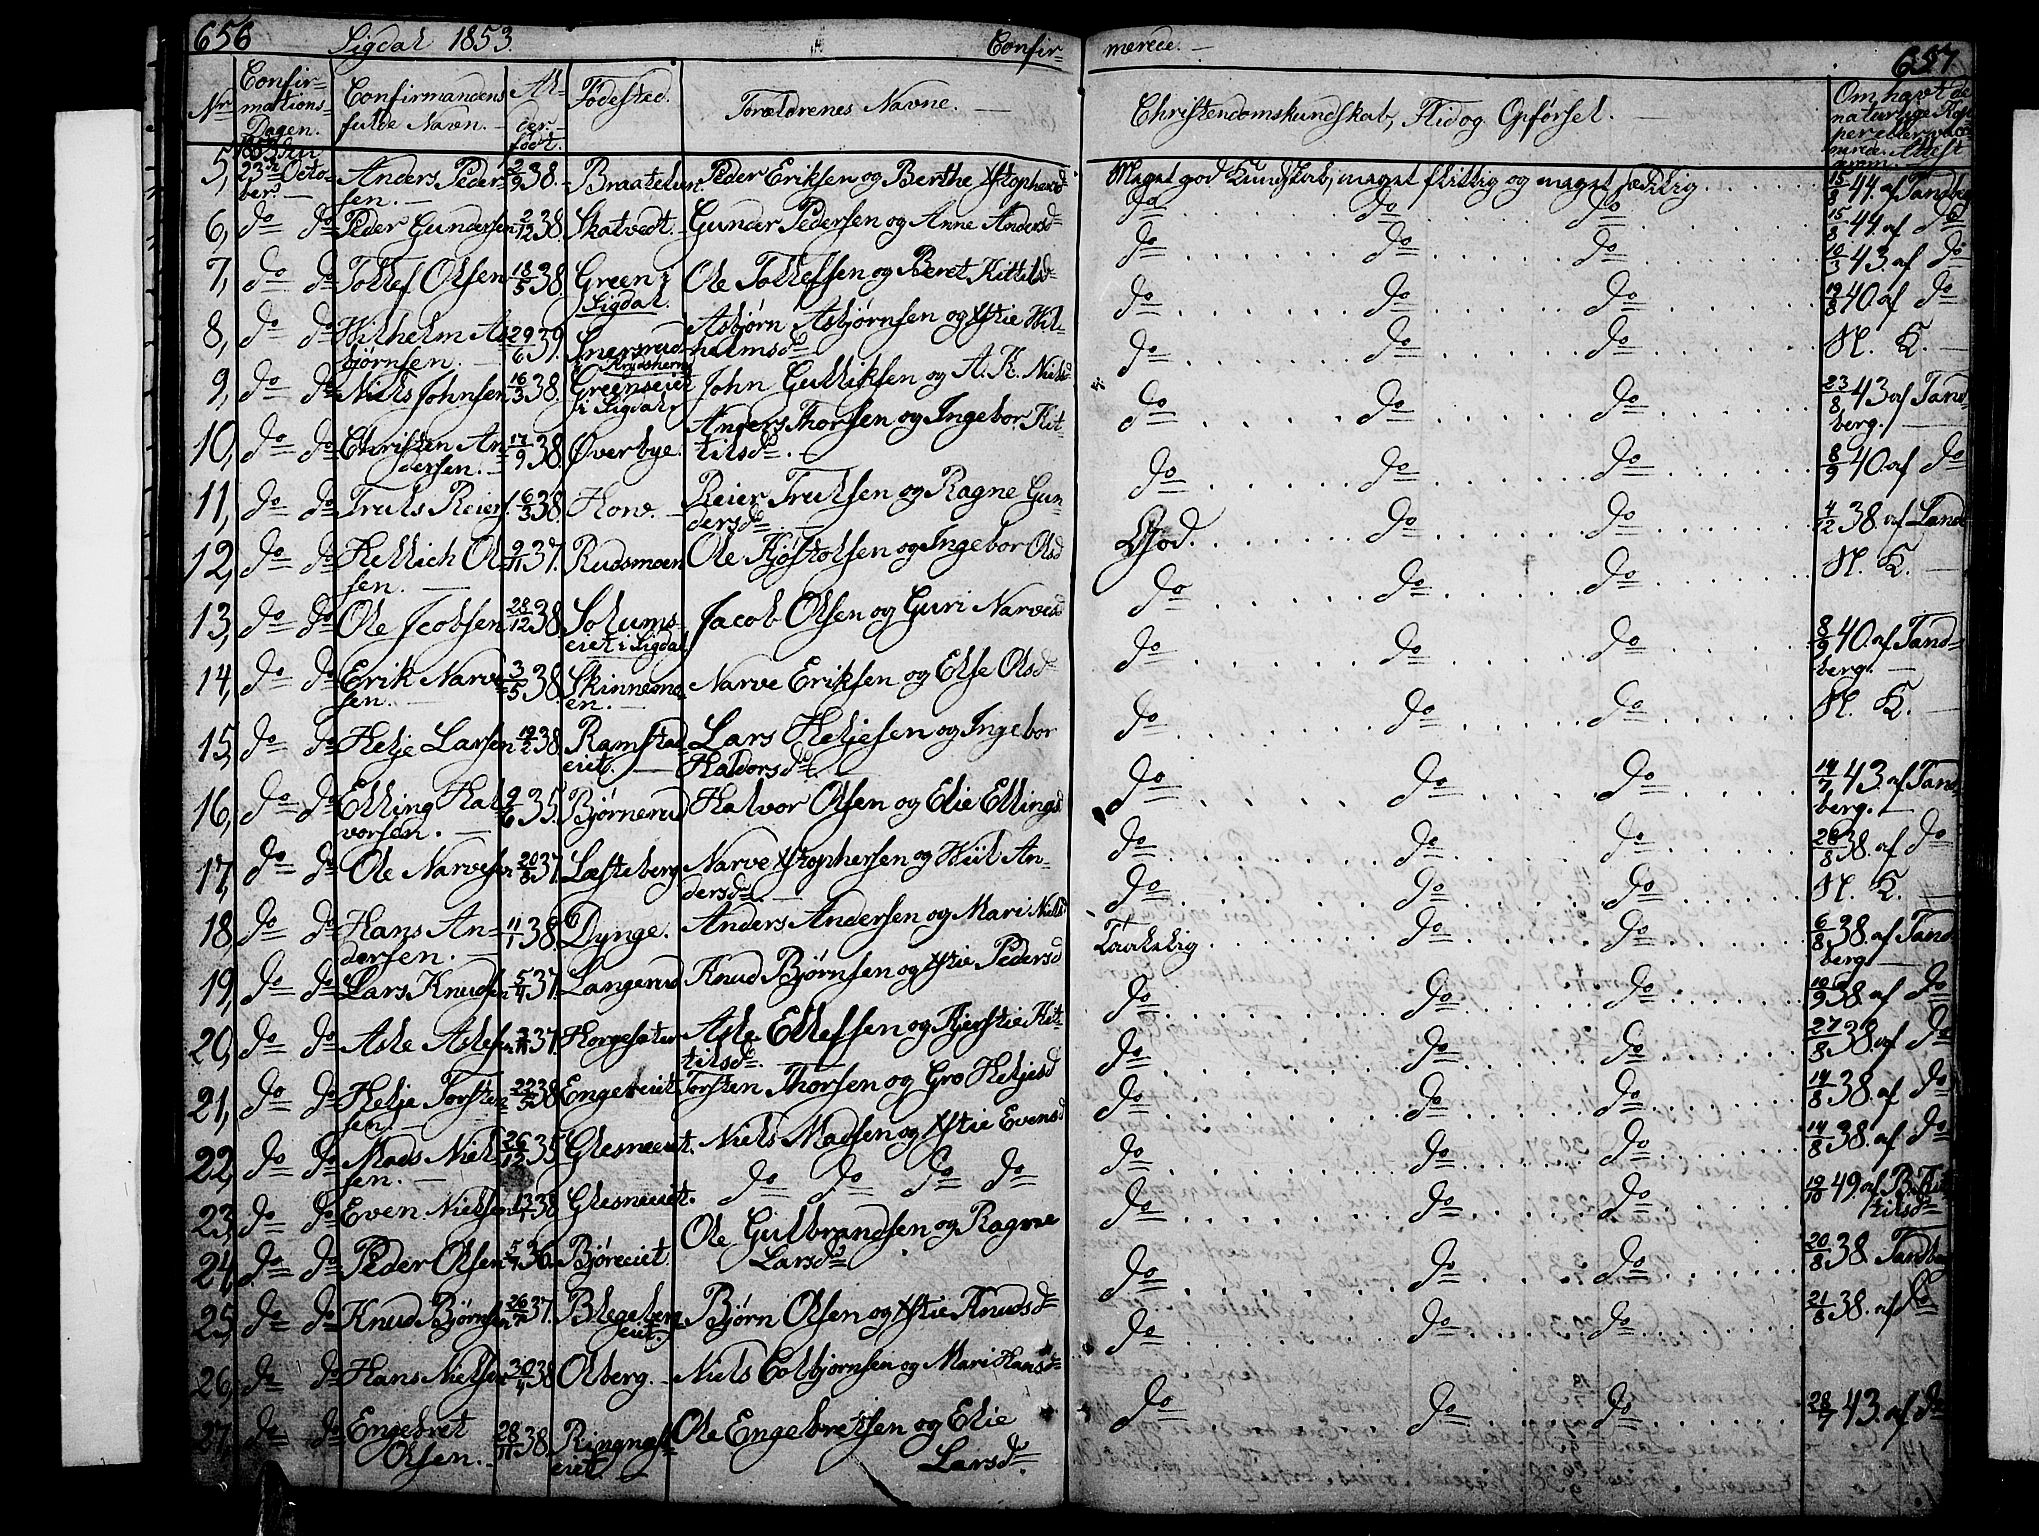 656 Sigdal 1853. Confir-
merede. 657
Nr Confir-
mations-
Dagen. Confirmandens
fulde Navn. Al-
der.
født. Fødested. Forældrenes Navne.
Christendomskundskab, Flid og Opførsel. Om havt de
naturlige Kop-
per eller vacci-
nerede. Attest
derom.
5, 1853 den
23de Octo-
ber. Anders Peder-
sen. 2/9 38. Braatelun Peder Eriksen og Berthe Xstophersd Meget god Kundskab, meget flittig og meget sædelig 15/8 44. af Tandberg
6, do do Peder Gundersen 2/12 38. Skatvedt. Gunder Pedersen og Anne Andersd do do do 15/8 44. af do
7, do do Tollef Olsen 18/5 38. Green i
Sigdal. Ole Tollefsen og Beret Kittilsd do do do 10/3 43. af do
8, do do Wilhelm As-
bjørnsen. 29/6 39. Snersrud
Krydsherred Asbjørn Asbjørnsen og Xstie Wil-
helmsd do do do 19/8 40 af do
9, do do Niels Johnsen 16/3 38. Greenseiet
i Sigdal John Gulliksen og A. K. Nielsd do do do N. K.
10, do do Christen An-
dersen. 17/9 38. Øverbye. Anders Thorsen og Ingebor Kit-
tilsd. do do do 23/8 43 af Tand-
berg.
11, do do Truls Reiers. 6/3 38. Hovv. Reier Trulsen og Ragne Gun-
dersd do do do 8/9 40. af do
12, do do Hellich Ol-
sen. 9/11 37. Rudsmoen Ole Kjøstolsen og Ingebor Olsd God. do do 4/12 38. af Landb
13, do do Ole Jcobsen 28/12 38. Solums
eiet i Sigdal Jacob Olsen og Guri Narvesd do do do N. K.
14, do do Erik Narve-
sen. 3/5 38. Skinnesmo
en. Narve Eriksen og Else Olsd do do do 8/9 40. af Tand-
berg.
15, do do Helje Larsen 19/2 38. Ramstad
eiet. Lars Heljesen og Ingebor
Haldorsd. do do do N. K.
16, do do Elling Hal-
vorsen. 9/6 35. Bjørnerud Halvor Olsen og Elie Ellingsd do do do 14/7 43. af Tand-
berg.
17, do do Ole Narvesen 20/8 37. Lofteberg Narve Xstophersen og Hiil An-
dersd. do do do 28/8 38. af do
18, do do Hans An-
dersen. 11/1 38. Dynge. Anders Andersen og Mari Nielsd do do do N. K.
19, do do Lars Knudsen 5/4 37. Langerud Knud Bjørnsen og Xstie Pedersd Taalelig do do 6/8 38. af Tand
berg
20, do do Asle Aslesen 37. Horgeseter Asle Ellefsen og Kjerstie Kit-
tilsd. do do do 10/9 38. af do
21, do do Helje Torsten-
sen. 22/5 38 Engereiet Torsten Thorsen og Gro Heljesd do do do 27/8 38. af do
22, do do Mads Niel-
sen. 26/12 35. Glesneeiet. Niels Madsen og Xstie Evensd do do do 14/8 38. af do
23, do do Even Nielsen 13/1 38 Glesneeiet. do do do do do do do 14/8 38. af do
24, do do Peder Olsen 36. Bjøreeiet Ole Gulbrandsen og Ragne
Larsd do do do 19/10 49. af B. Kit-
tilsd
25, do do Knud Bjørnsen 26/7 37. Blegeberg
eiet. Bjørn Olsen og Xstie Knudsd do do do 20/8 38. Tandberg
26, do do Hans Nielsen 30/4 38. Olberg. Niels Colbjørnsen og Mari Hansd do do do 21/8 38. af do
27, do do Engebret
Olsen. 28/11 38. Ringnes-
eiet Ole Engebretsen og Elie
Larsd. do do do 28/7 43. af do